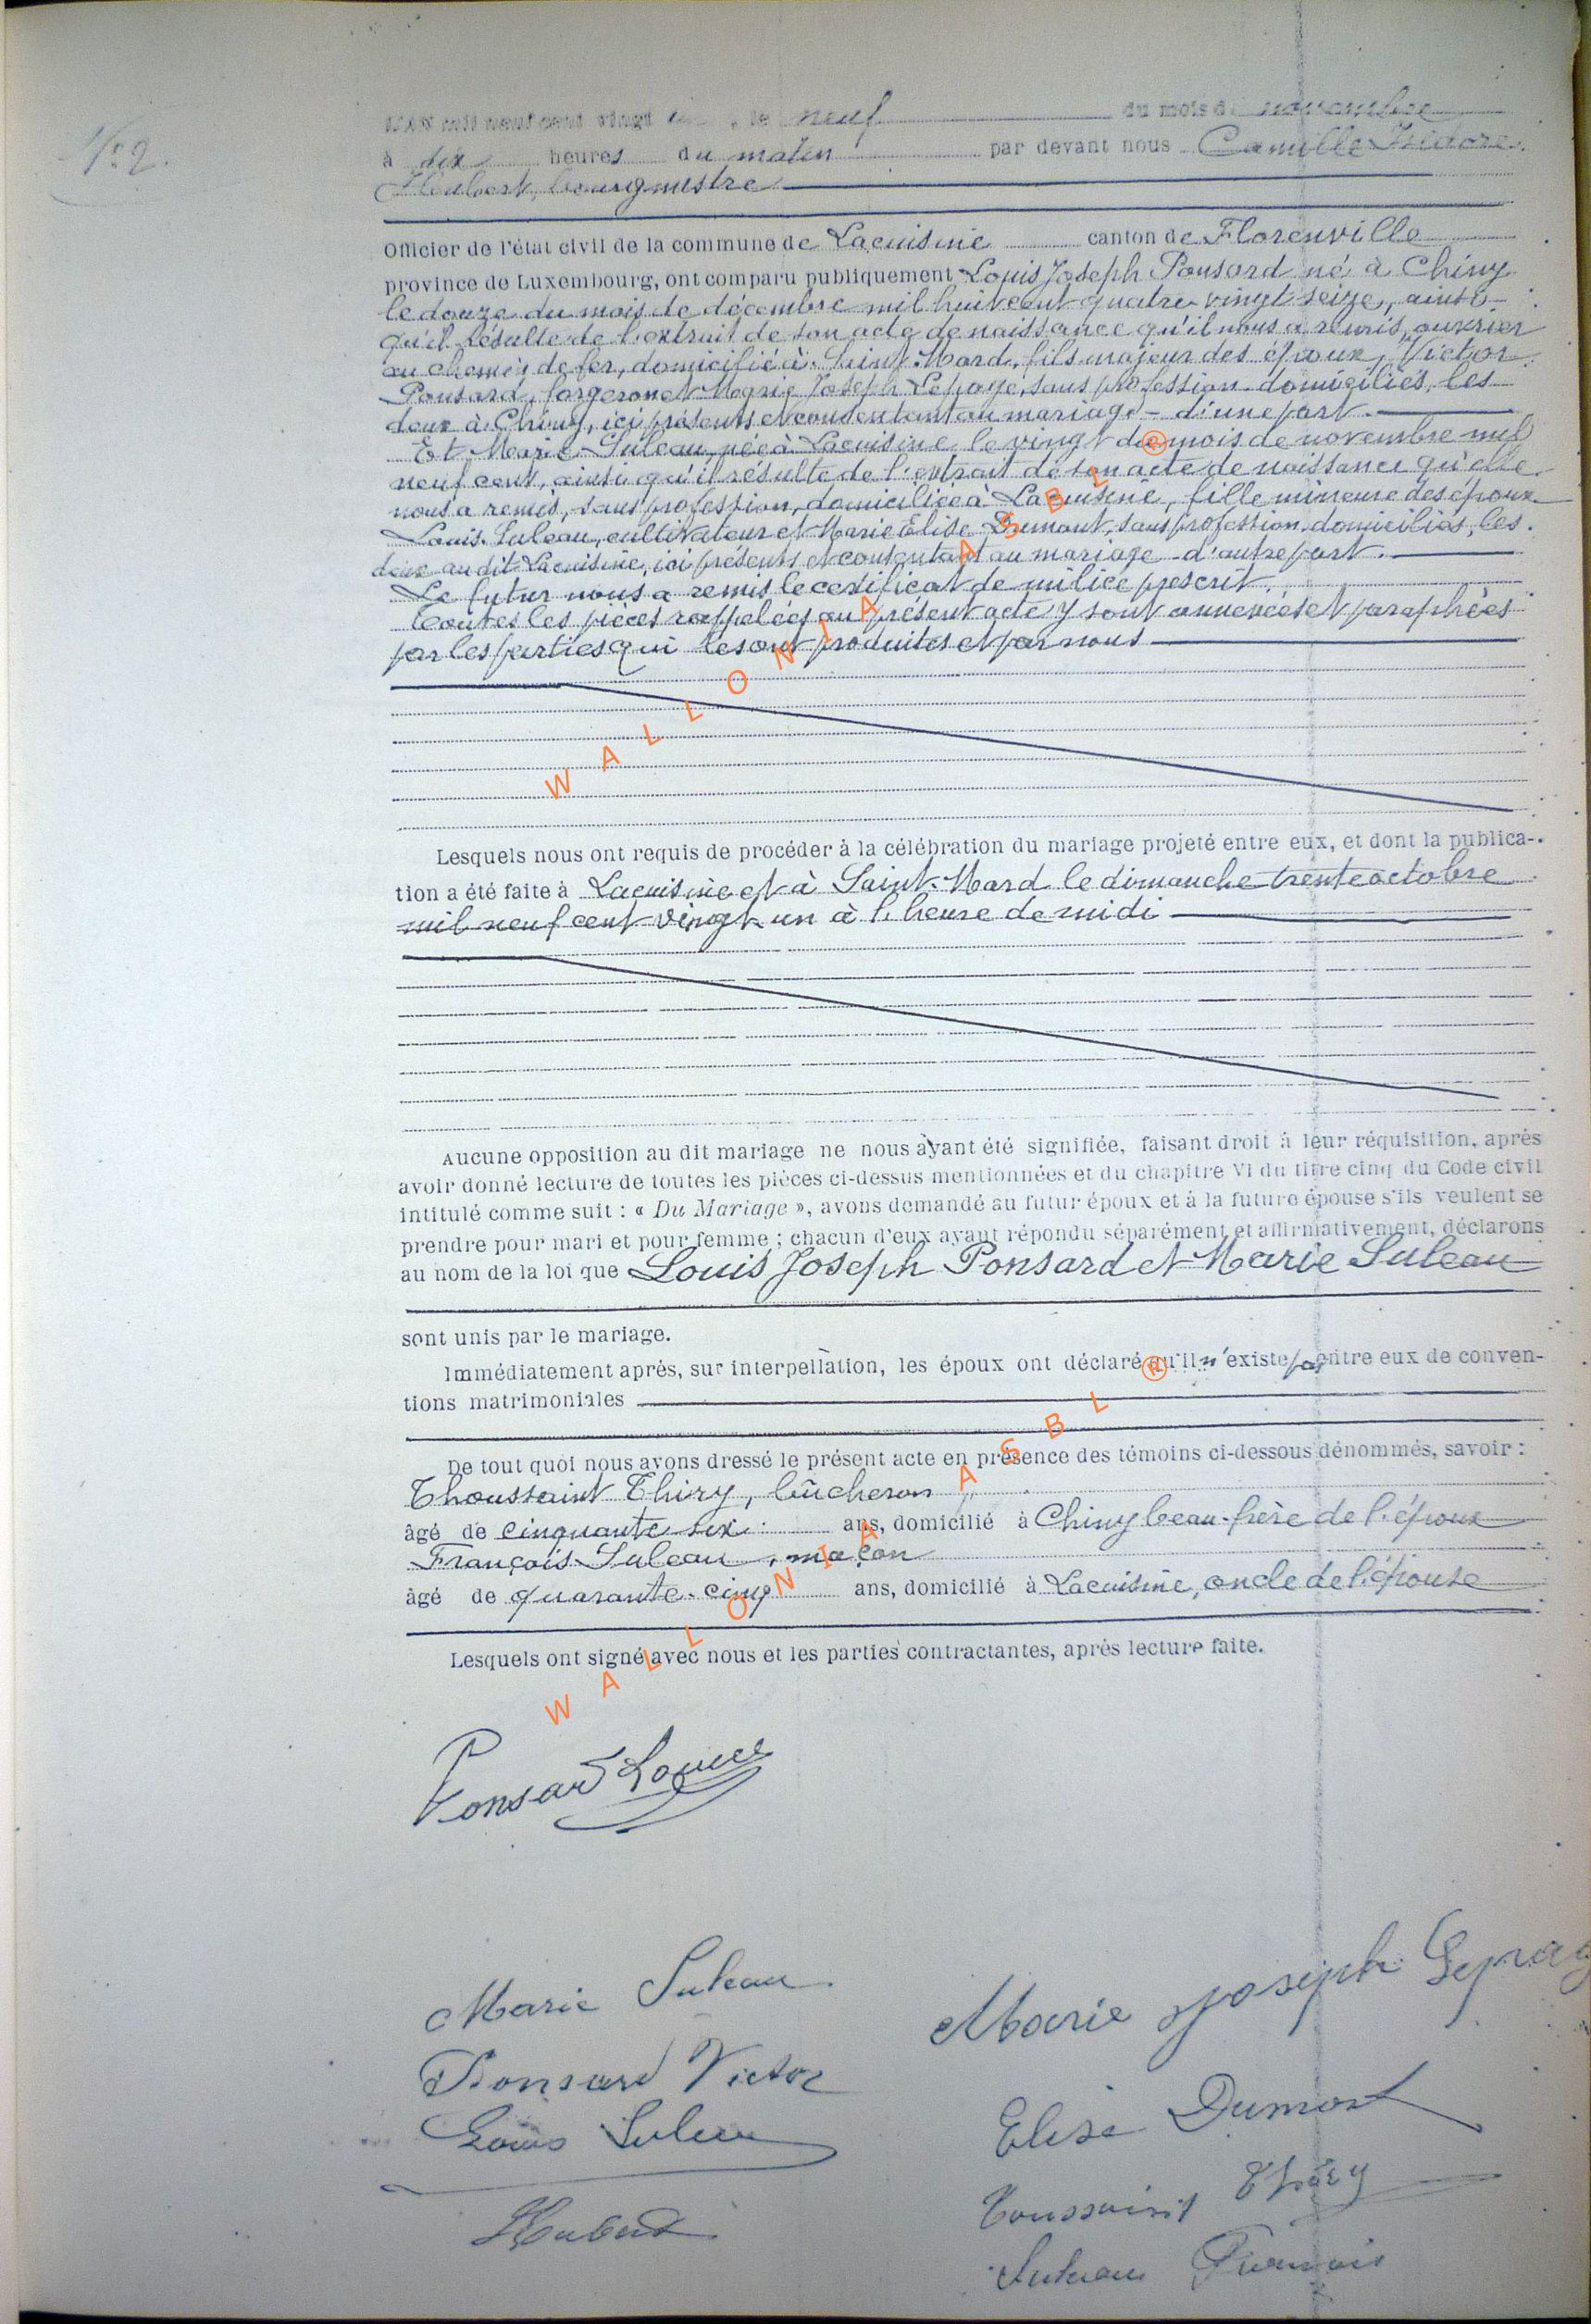 N° 2.
L'an mil neuf cent vingt un, le neuf du mois de novembre
à dix heures du matin par devant nous Camille Isidore
Hubert, bourgmestre
Officier de l'état civil de la commune de Lacuisine canton de Florenville
province de Luxembourg, ont comparu publiquement Louis Joseph Ponsard né à Chiny
le douze du mois de décembre mil huit cent quatre vingt seize, ainsi
qu'il résulte de l'extrait de son acte de naissance qu'il nous a remis, ouvrier
au chemin de fer, domicilié à Saint-Mard, fils majeur des époux, Victor
Ponsard, forgeron et Marie Joseph Lepage, sans profession domiciliés, les
deux à Chiny, ici présents et consentant au mariage - d'une part.
Et Marie Suleau, née à Lacuisine le vingt du mois de novembre mil
neuf cent, ainsi qu'il résulte de l'extrait de son acte de naissance qu'elle
nous a remis, sans profession, domiciliée à Lacuisine, fille mineure des époux
Louis Suleau, cultivateur et Marie Elise Dumont, sans profession, domiciliés, les
deux au dit Lacuisine, ici présents et consentant au mariage - d'autre part.
Le futur nous a remis le certificat de milice prescrit.
Toutes les pièces rappelées au présent acte y sont annexées et paraphées
par les parties qui les ont produites et par nous
Lesquels nous ont requis de procéder à la célébration du mariage projeté entre eux, et dont la publica-
tion a été faite à Lacuisine et à Saint-Mard le dimanche trente octobre
mil neuf cent vingt un à l'heure de midi
Aucune opposition au dit mariage ne nous ayant été signifiée, faisant droit à leur réquisition, après
avoir donné lecture de toutes les pièces ci-dessus mentionnées et du chapitre VI du titre cinq du Code civil
intitulé comme suit : « Du Mariage », avons demandé au futur époux et à la future épouse s'ils veulent se
prendre pour mari et pour femme ; chacun d'eux ayant répondu séparément et affirmativement, déclarons
au nom de la loi que Louis Joseph Ponsard et Marie Suleau
sont unis par le mariage.
Immédiatement après, sur interpellation, les époux ont déclaré qu'il n'existe pas entre eux de conven-
tions matrimoniales
De tout quoi nous avons dressé le présent acte en présence des témoins ci-dessous dénommés, savoir :
Thoussaint Thiry, bûcheron
âgé de cinquante six ans, domicilié à Chiny beau-frère de l'époux
François Suleau, maçon
âgé de quarante-cinq ans, domicilié à Lacuisine, oncle de l'épouse
Lesquels ont signé avec nous et les parties contractantes, après lecture faite.
Ponsard Louis
Marie Suleau
Marie Joseph Lepag
Ponsard Victor
Elise Dumont
Louis Suleau
Toussaint Thiry
Hubert
Suleau François
WALLONIA ASBL ®
WALLONIA ASBL ®